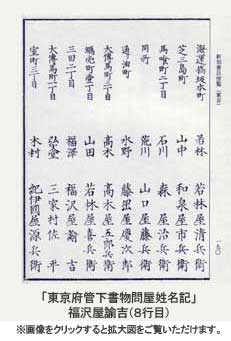 新刻書目便覧（東京）
海運橋坂本町 若林 若林屋清兵衛
芝三島町 山中 和泉屋市兵衛
馬喰町二丁目 石川 森屋治兵衛
同所 荒川 山口屋藤兵衛
通油町 水野 藤岡屋慶次郎
大傳馬町二丁目 高木 高木屋五郎兵衛
町壹丁目 山田 若林屋喜兵衛
三田二丁目 福澤 福沢屋諭吉
大傳馬町二丁目 三家村佐平
室町三丁目 木村 紀伊國屋源兵衛
「東京府管下書物問屋姓名記」
福沢屋諭吉（8行目）
※画像をクリックすると拡大図をご覧いただけます。